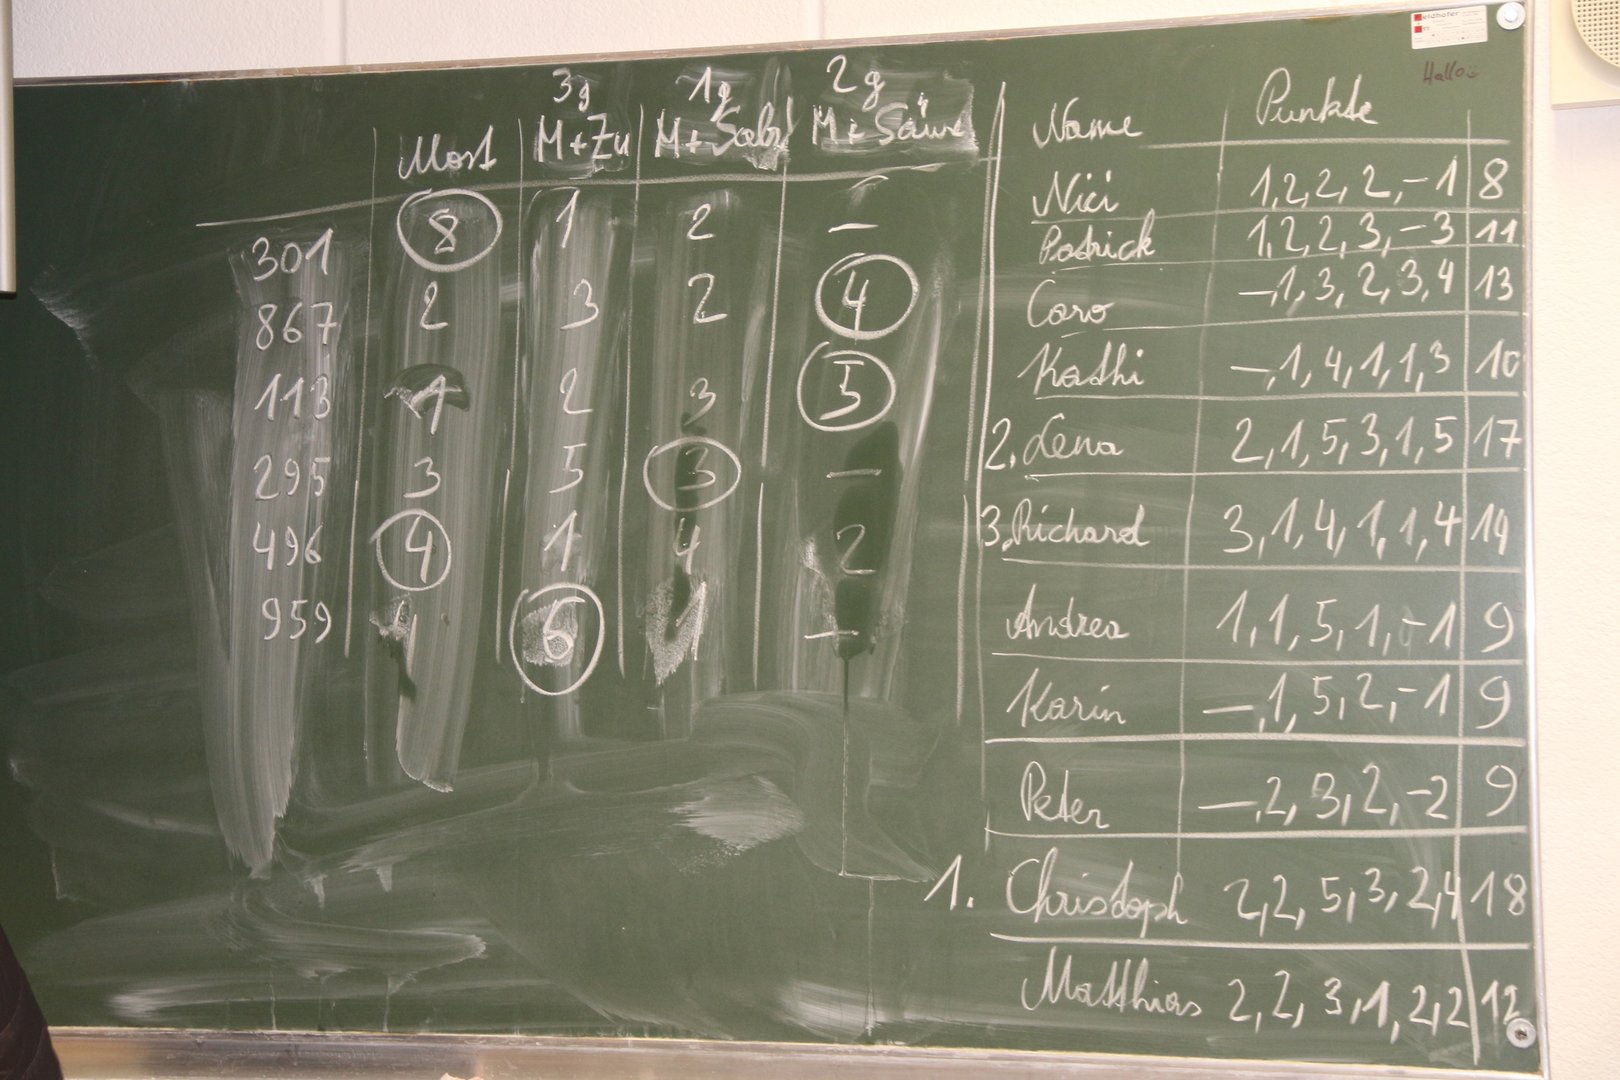 3g 1g 2g
Most M+Zu M+Salz M+Säure
301 8 1 2 –
867 2 3 2 4
113 1 2 3 5
295 3 5 3 –
496 4 1 4 2
959 6 –
Hallo
Name Punkte
Nici 1,2,2,2,-1 8
Patrick 1,2,2,3,-3 11
Caro –,1,3,2,3,4 13
Kathi –,1,4,1,1,3 10
2. Lena 2,1,5,3,1,5 17
3. Richard 3,1,4,1,1,4 14
Andrea 1,1,5,1,-1 9
Karin –,1,5,2,-1 9
Peter –,2,3,2,-2 9
1. Christoph 2,2,5,3,2,4 18
Matthias 2,2,3,1,2,2 12